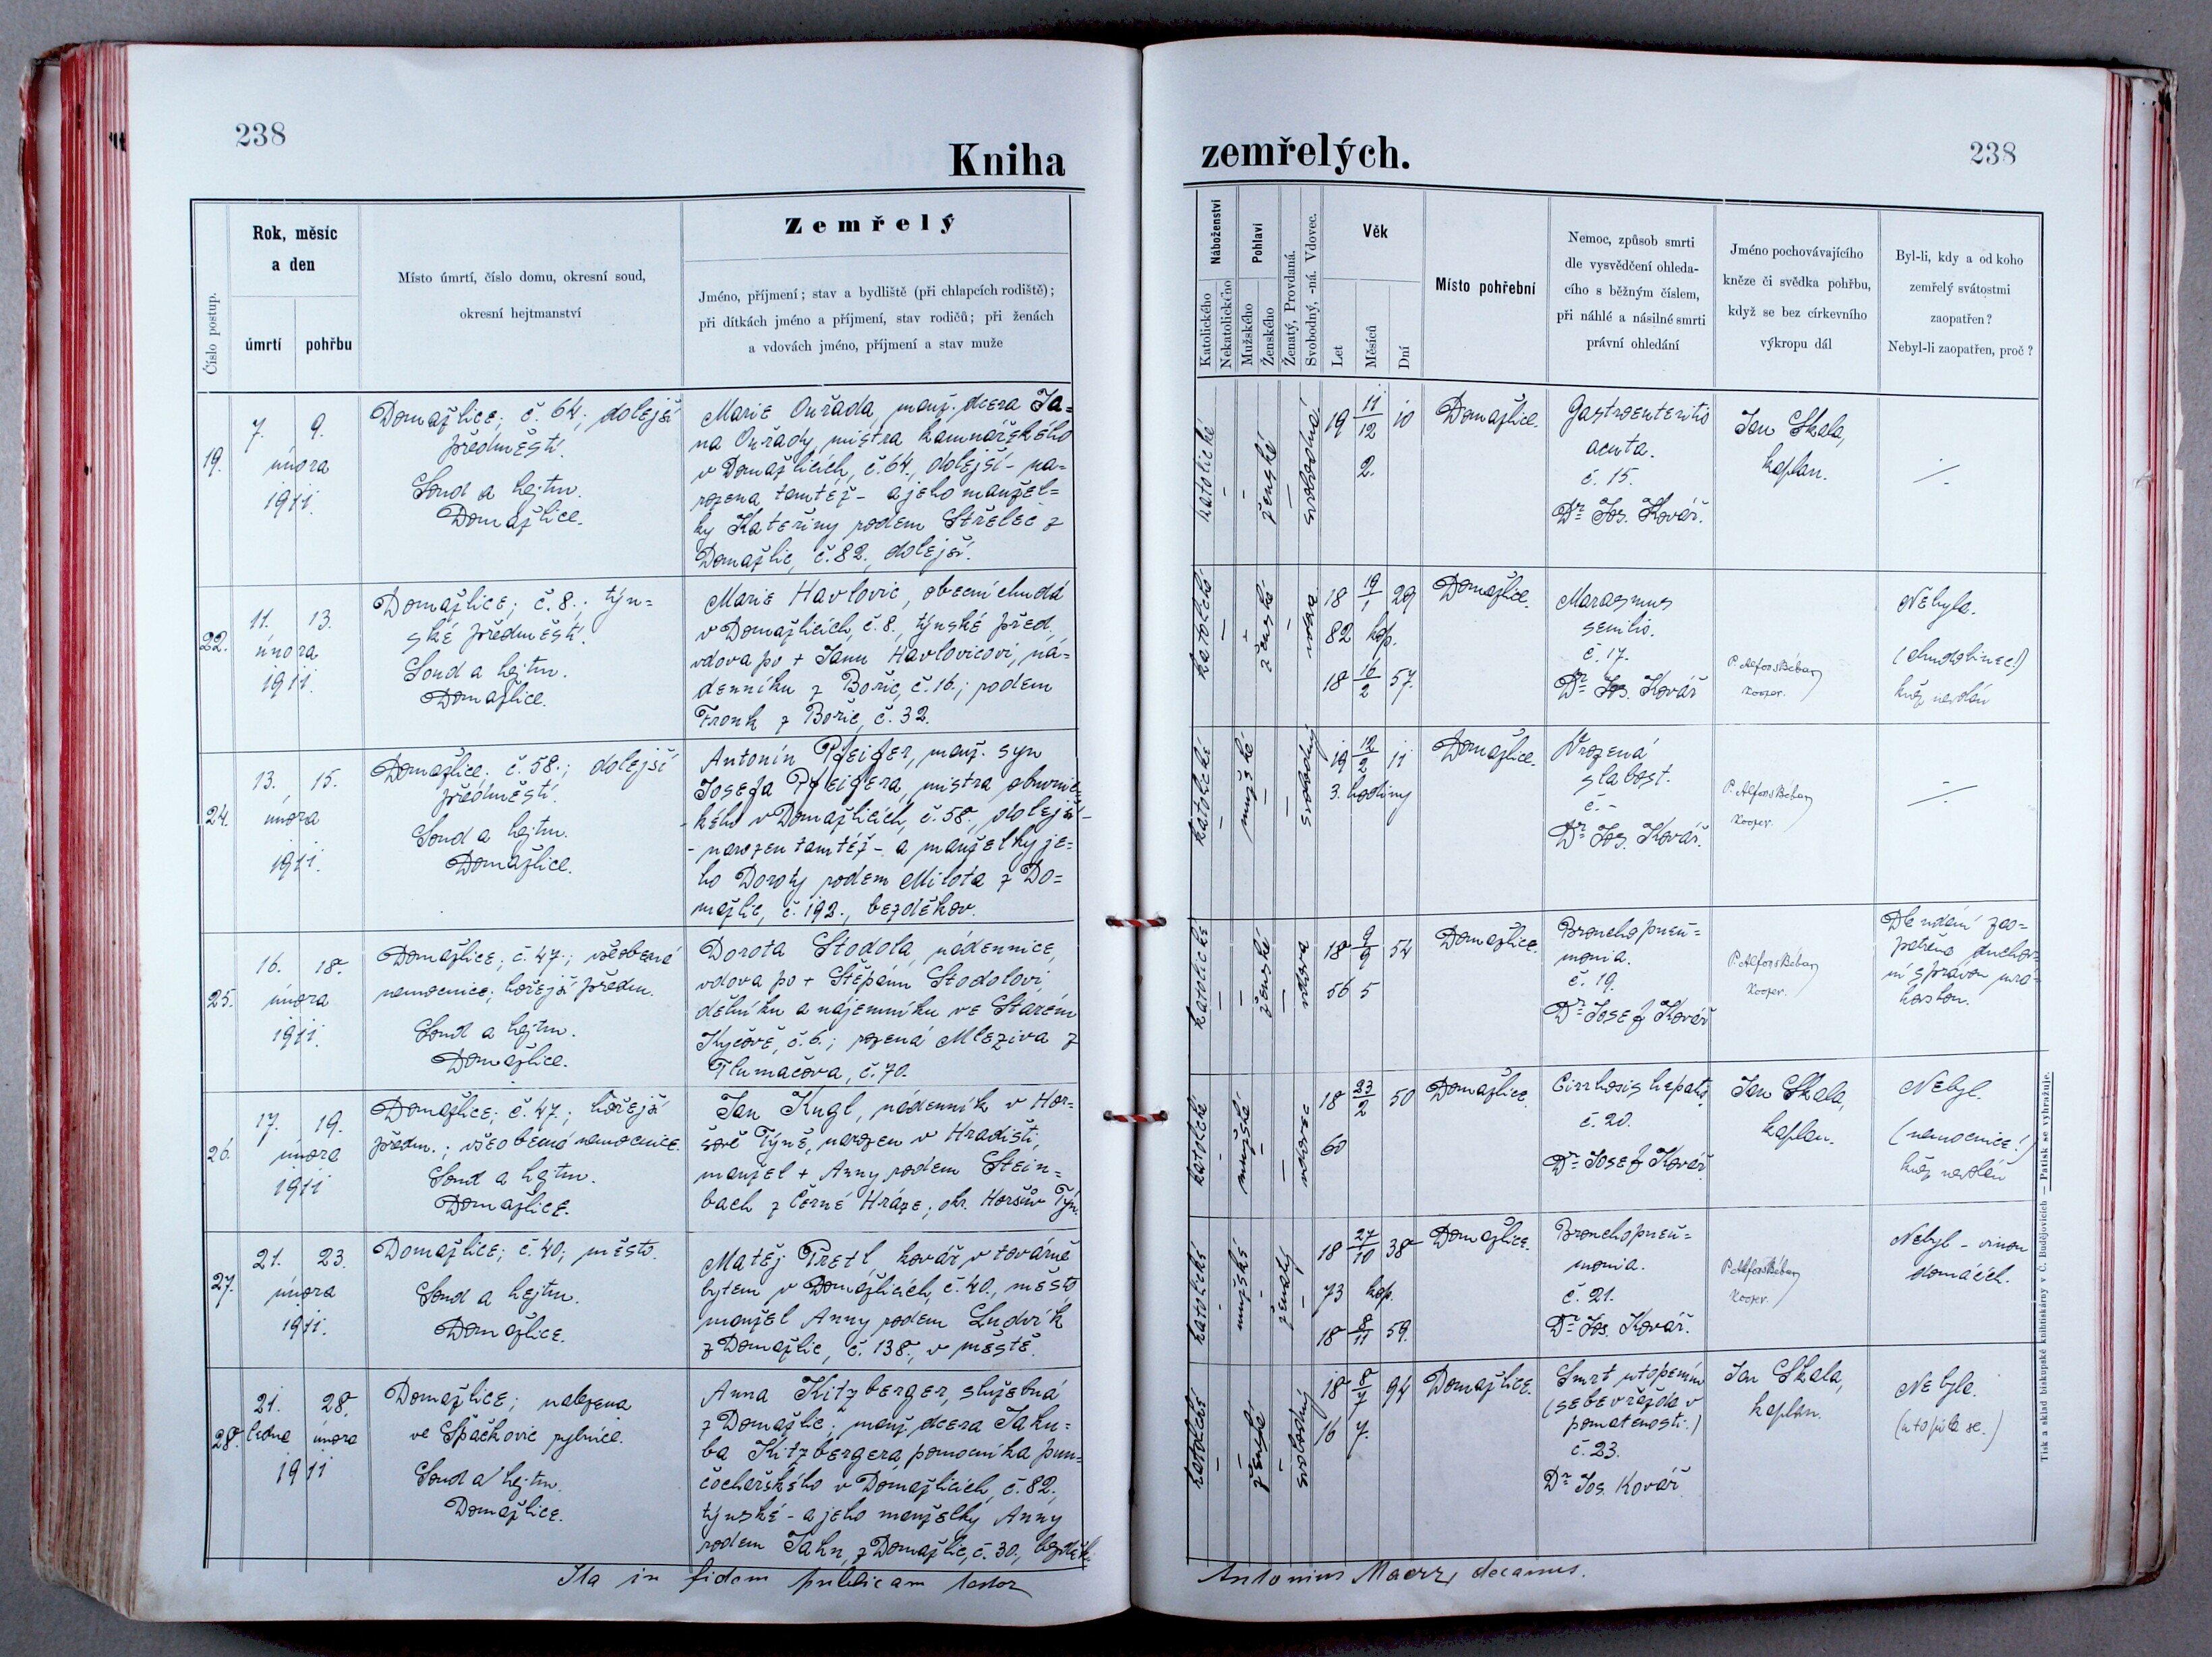 238
Kniha
zemřelých.
238
Číslo postup.
Rok, měsíc
a den
úmrtí
pohřbu
Místo úmrtí, číslo domu, okresní soud,
okresní hejtmanství
Zemřelý
Jméno, příjmení; stav a bydliště (při chlapcích rodiště);
při dítkách jméno a příjmení, stav rodičů; při ženách
a vdovách jméno, příjmení a stav muže
Náboženství
Katolického
Nekatolického
Pohlaví
Mužského
Ženského
Ženatý, Provdaná.
Svobodný, -ná. Vdovec.
Věk
Let
Měsíců
Dní
Místo pohřební
Nemoc, způsob smrti
dle vysvědčení ohleda-
cího s běžným číslem,
při náhlé a násilné smrti
právní ohledání
Jméno pochovávajícího
kněze či svědka pohřbu,
když se bez církevního
výkropu dál
Byl-li, kdy a od koho
zemřelý svátostmi
zaopatřen?
Nebyl-li zaopatřen, proč?
19.
7. 9.
února
1911.
Domažlice; č. 64; dolejší
předměstí.
Soud a hejtm.
Domažlice.
Marie Ouřada, manž. dcera Ja=
na Ouřady, mistra kamnářského
v Domažlicích, č. 64., dolejší - na=
rozena tamtéž - a jeho manžel=
ky Kateřiny rodem Střelec z
Domažlic, č. 82., dolejší.
katolické
-
-
ženské
-
svobodná
19 11/12 10
2.
Domažlice.
Gastroenteritis
acuta.
č. 15.
Dr Jos. Kovář.
Jan Skala,
kaplan.
22.
11. 13.
února
1911.
Domažlice; č. 8.; týn=
ské předměstí.
Soud a hejtm.
Domažlice.
Marie Havlovic, obecní chudá
v Domažlicích, č. 8., týnské před.
vdova po + Janu Havlovicovi, ná=
denníku z Bořic, č. 16.; rodem
Fronk z Bořic, č. 32.
katolické
-
-
ženské
-
vdova
18 19/1 29
82 kop.
18 16/2 57.
Domažlice.
Marasmus
senilis.
č. 17.
Dr Jos. Kovář
P. Alfons Béban
kooper.
Nebyla.
(chudobinec!)
kněz nevolán
24.
13. 15.
února
1911.
Domažlice; č. 58.; dolejší
předměstí.
Soud a hejtm.
Domažlice.
Antonín Pfeifer, manž. syn
Josefa Pfeifera, mistra obuvnic-
kého v Domažlicích, č. 58., dolejší -
- narozen tamtéž - a manželky je=
ho Doroty rodem Milota z Do=
mažlic, č. 192., bezděkov.
katolické
-
mužské
-
-
svobodný
19 12/2 11
3. hodiny
Domažlice.
Vrozená
slabost.
č. -
Dr Jos. Kovář.
P. Alfons Béban
kooper.
25.
16. 18.
února
1911.
Domažlice; č. 47.; všeobecná
nemocnice; hořejší předm.
Soud a hejtm.
Domažlice.
Dorota Stodola, nádennice,
vdova po + Štěpánu Stodolovi,
dělníku a nájemníku ve Starém
Kyčově, č. 6.; rozená Mleziva z
Tlumačova, č. 70.
katolické
-
-
ženské
-
vdova
18 9/9 54
56 5
Domažlice.
Bronchopneu=
monia.
č. 19.
Dr Josef Kovář
P. Alfons Béban
kooper.
Dle udání zao=
patřena duchov-
ní správou
26.
17. 19.
února
1911
Domažlice; č. 47.; hořejší
předm.; všeobecná nemocnice.
Soud a hejtm.
Domažlice.
Jan Kugl, nádenník v Hor=
šově Týně, narozen v Hradišti,
manžel + Anny rodem Stein=
bach z Černé Hráze; okr. Horšův Týn.
katolické
-
mužské
-
-
vdovec
18 23/2 50
60
Domažlice.
Cirrhosis hepatis.
č. 20.
Dr Josef Kovář
Jan Skala,
kaplan.
Nebyl.
(nemocnice!)
kněz nevolán
27.
21. 23.
února
1911.
Domažlice; č. 40; město.
Soud a hejtm.
Domažlice.
Matěj Pretl, kovář v továrně
bytem v Domažlicích, č. 40., město,
manžel Anny rodem Ludvík
z Domažlic, č. 138., v městě.
katolické
-
mužské
-
ženatý
-
18 27/10 38
73 kop.
18 8/11 59.
Domažlice.
Bronchopneu=
monia.
č. 21.
Dr Jos. Kovář.
P. Alfons Béban
kooper.
Nebyl - vinou
domácích.
28.
21. 28.
ledna února
1911
Domažlice; nalezena
ve Špačkovic rybníce.
Soud a hejtm.
Domažlice.
Anna Kitzberger, služebná
z Domažlic; manž. dcera Jaku=
ba Kitzbergera, pomocníka pun=
čochářského v Domažlicích, č. 82.,
týnské - a jeho manželky Anny
rodem Jahn, z Domažlic, č. 30., bezděk.
katolické
-
-
ženské
-
svobodný
18 8/7 94
16 7.
Domažlice.
Smrt utopením
(sebevražda v
pomatenosti.)
č. 23.
Dr Jos. Kovář.
Jan Skala,
kaplan.
Nebyla.
(utopila se.)
Ita in fidem publicam testor
Antonius Maerz, decanus.
Tisk a sklad biskupské knihtiskárny v Č. Budějovicích — Patisk se vyhražuje.